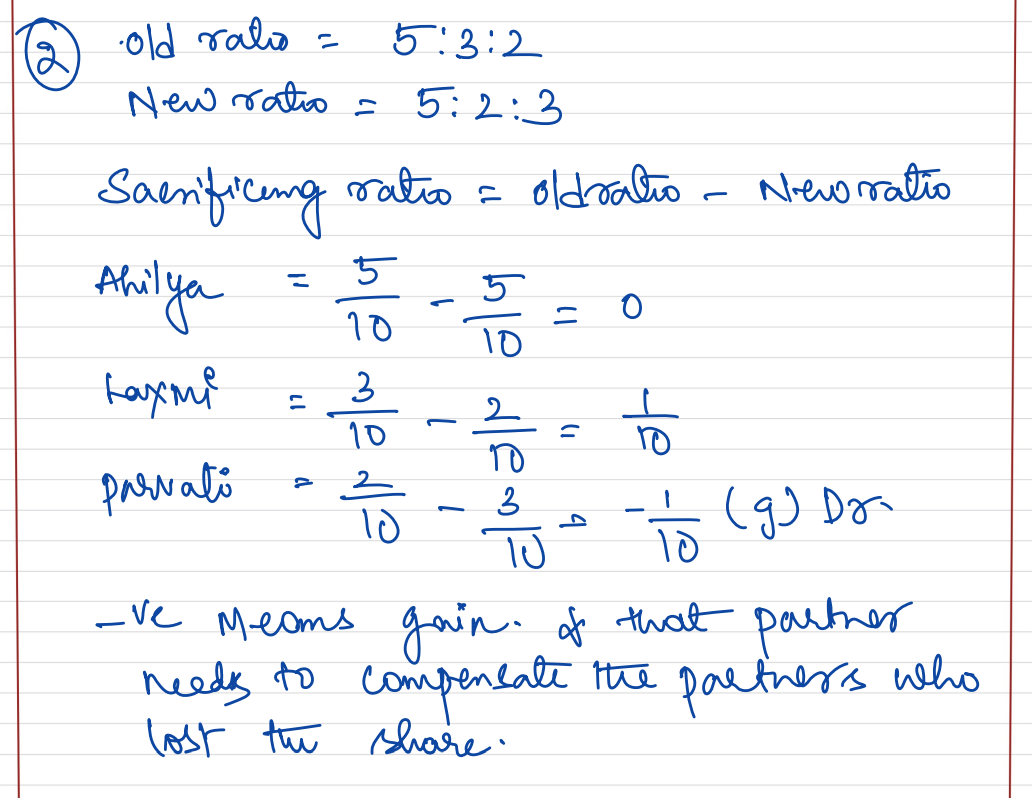 ② old ratio = 5:3:2
New ratio = 5:2:3
Sacrificing ratio = old ratio - New ratio
Ahilya = 5/10 - 5/10 = 0
Laxmi = 3/10 - 2/10 = 1/10
parvati = 2/10 - 3/10 = -1/10 (g) Dr.
-ve Means gain. & that partner
needs to compensate the partners who
lost the share.